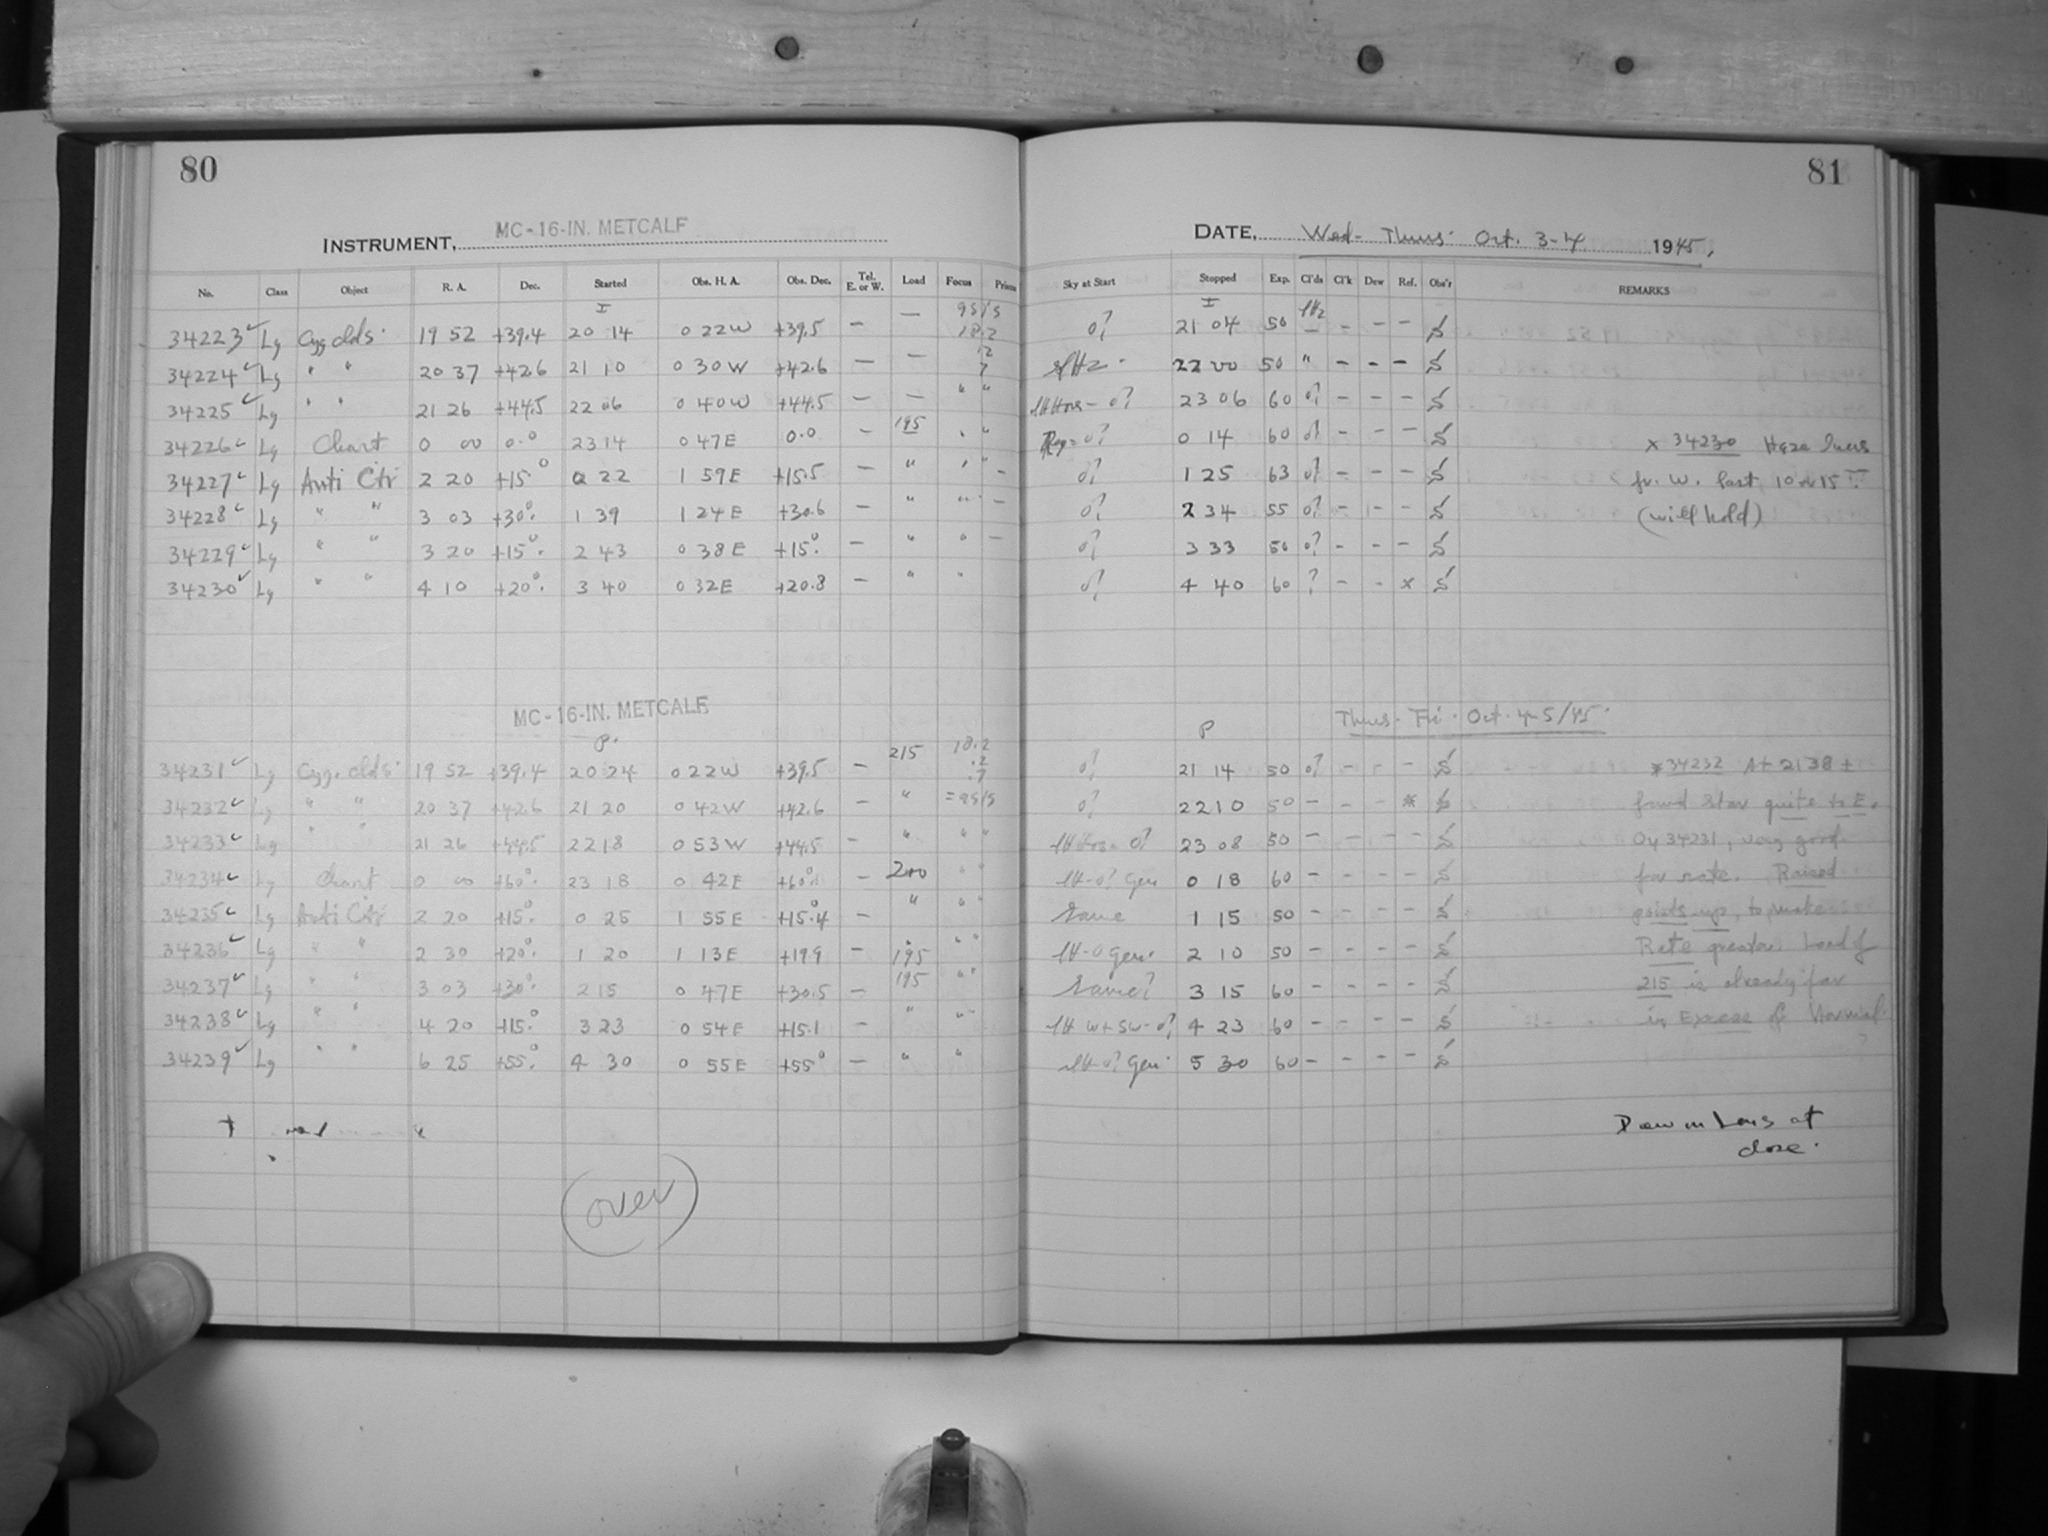 80
INSTRUMENT, MC-16-IN. METCALF
No. Class Object R. A. Dec. Started Obs. H. A. Obs. Dec. Tel. E. or W. Load Focus
34223 Lg Cyg clds. 19 52 +39.4 20 14 0 22W +39.5 — — 18.2
34224 Lg " " 20 37 +42.6 21 10 0 30W +42.6 — —
34225 Lg " " 21 26 +44.5 22 06 0 40W +44.5 — — " "
34226 Lg Chart 0 00 0.0 23 14 0 47E 0.0 — 195 " "
34227 Lg Anti Ctr 2 20 +15° 0 22 1 59E +15.5 — " " " —
34228 Lg " " 3 03 +30° 1 39 1 24E +30.6 — " " " —
34229 Lg " " 3 20 +15° 2 43 0 38E +15° — " " —
34230 Lg " " 4 10 +20° 3 40 0 32E +20.8 — " "
MC-16-IN. METCALF
P.
34231 Lg Cyg. clds. 19 52 +39.4 20 24 0 22W +39.5 — 215 18.2
34232 Lg " " 20 37 +42.6 21 20 0 42W +42.6 — "
34233 Lg " " 21 26 +44.5 22 18 0 53W +44.5 — " " "
34234 Lg Chart 0 00 +60° 23 18 0 42E +60° — 200 " "
34235 Lg Anti Ctr 2 20 +15° 0 25 1 55E +15.4 — " " "
34236 Lg " " 2 30 +20° 1 20 1 13E +19.9 — 195 " "
34237 Lg " " 3 03 +30° 2 15 0 47E +30.5 — 195 " "
34238 Lg " " 4 20 +15° 3 23 0 54E +15.1 — " " "
34239 Lg " " 6 25 +55° 4 30 0 55E +55° — " "
(over)
81
DATE, Wed- Thurs. Oct. 3-4 1945,
Sky at Start Stopped Exp. Cl'ds Cl'k Dew Ref. Obs'r REMARKS
0? 21 04 50 — - - -
22 00 50 " - - -
0? 23 06 60 0? - - -
0? 0 14 60 0? - - -
0? 1 25 63 0? - - -
0? 2 34 55 0? - - -
0? 3 33 50 0? - - -
0? 4 40 60 ? - - x
x 34230 Haze
fr. W. last 10 or 15
(will hold)
Thurs- Fri. Oct. 4-5/45.
P
0? 21 14 50 0? - - -
0? 22 10 50 - - - *
0? 23 08 50 - - - -
0? Gen 0 18 60 - - - -
Same 1 15 50 - - - -
Gen. 2 10 50 - - - -
Same? 3 15 60 - - - -
W + SW - 0? 4 23 60 - - - -
0? Gen. 5 30 60 - - - -
*34232 At 2138 ±
found star quite to E.
On 34231, very good
for rate. Raised
points up, to make
Rate greater. Load of
215 is already far
in Excess of Normal.
Dew on Lens at
close.